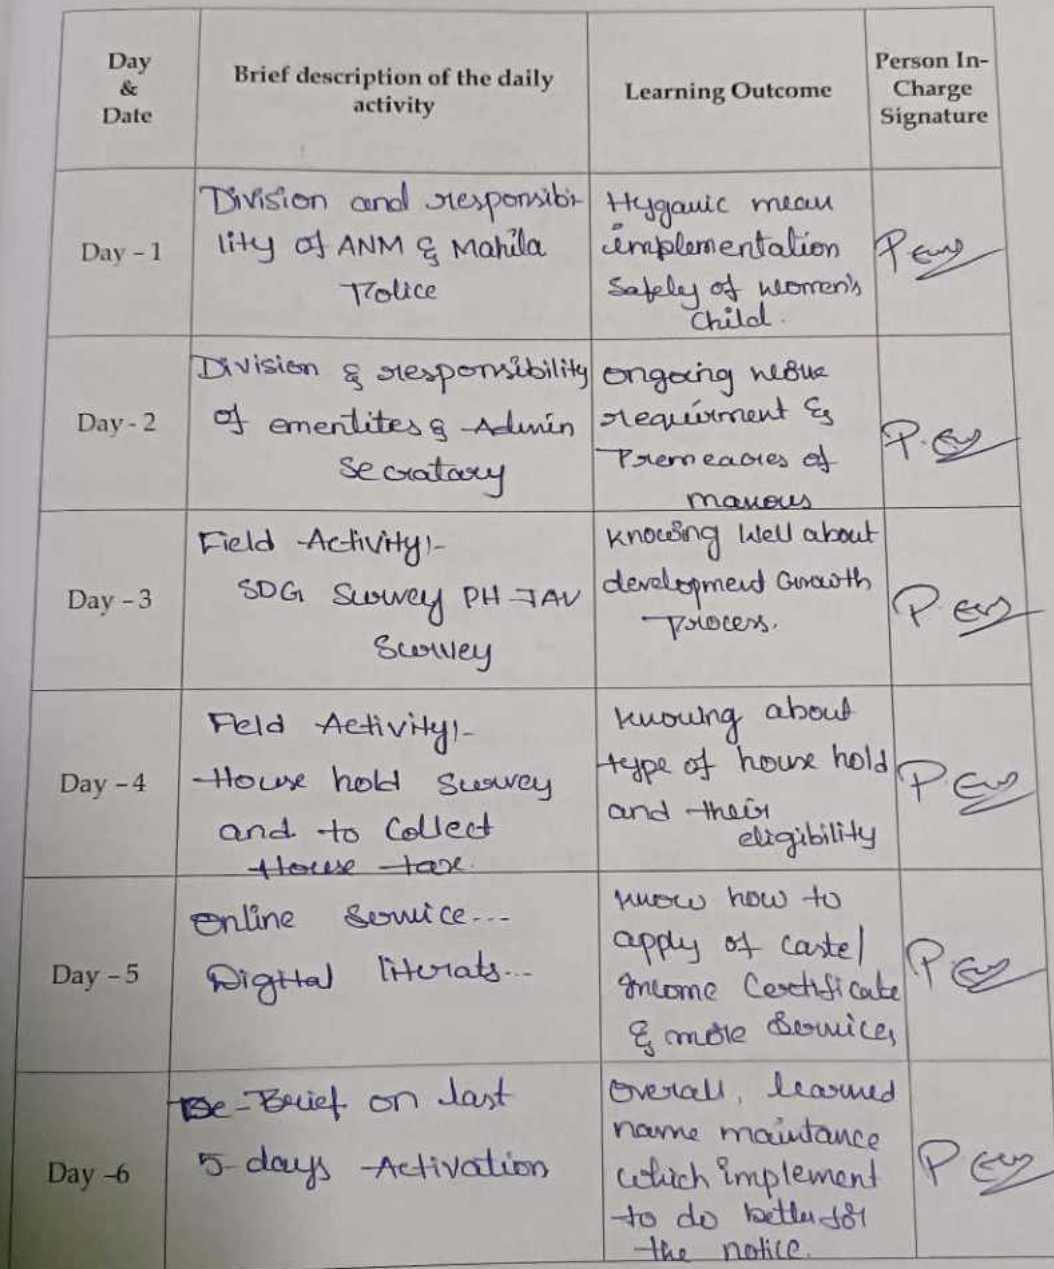 Day
&
Date
Brief description of the daily
activity
Learning Outcome
Person In-
Charge
Signature
Day - 1
Division and responsibi-
lity of ANM & Mahila
Police
Hyganic mean
implementation
Safely of women's
child.
Day - 2
Division & responsibility
of ementites & Admin
Secratary
ongoing
requirment &
of
Day - 3
Field Activity:-
SDG Survey PH JAV
Survey
Knowing Well about
development Growth
Process.
Day - 4
Field Activity:-
House hold Survey
and to Collect
House tax.
Knowing about
type of house hold
and their
eligibility
Day - 5
Online Service...
Digital literats...
Know how to
apply of caste/
Income Certificate
& more Services
Day -6
De-Brief on last
5-days Activation
Overall, learned
name maintance
which implement
to do better for
the notice.